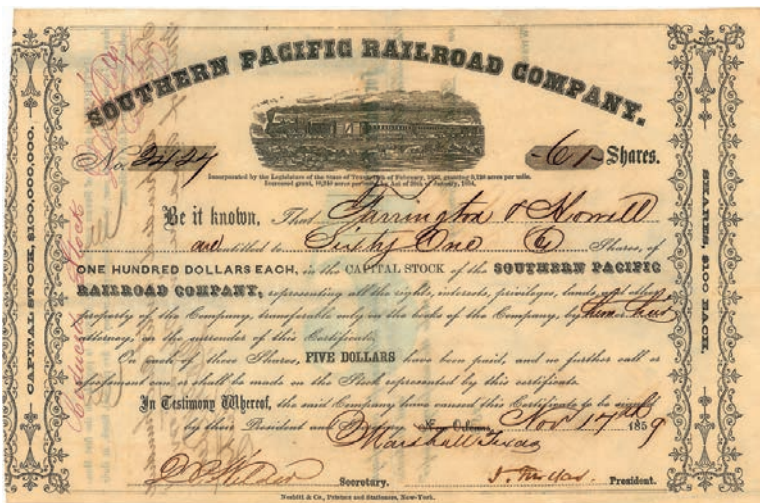 SOUTHERN PACIFIC RAILROAD COMPANY.
No. 2427 -61- Shares.
Incorporated by the Legislature of the state of Texas, of February, 1856, granting acres per mile.
Increased grant, acres per mile, by Act of of January, 1854.
Be it known, That Farrington & Howell
are entitled to Sixty One Shares, of
ONE HUNDRED DOLLARS EACH, in the CAPITAL STOCK of the SOUTHERN PACIFIC
RAILROAD COMPANY, representing all the rights, interests, privileges, lands, and other
property of the Company, transferable only on the books of the Company, by them or their
attorney, on the surrender of this Certificate.
On each of these Shares, FIVE DOLLARS have been paid, and no further call or
assessment can or shall be made on the Stock represented by this certificate.
In Testimony Whereof, the said Company have caused this Certificate to be signed
by their President and Secretary New Orleans, Nov 17th 1859
Marshall Texas
Secretary. President.
Nesbitt & Co., Printers and Stationers, New-York.
CAPITAL STOCK
SHARES, $100 EACH.
Stock